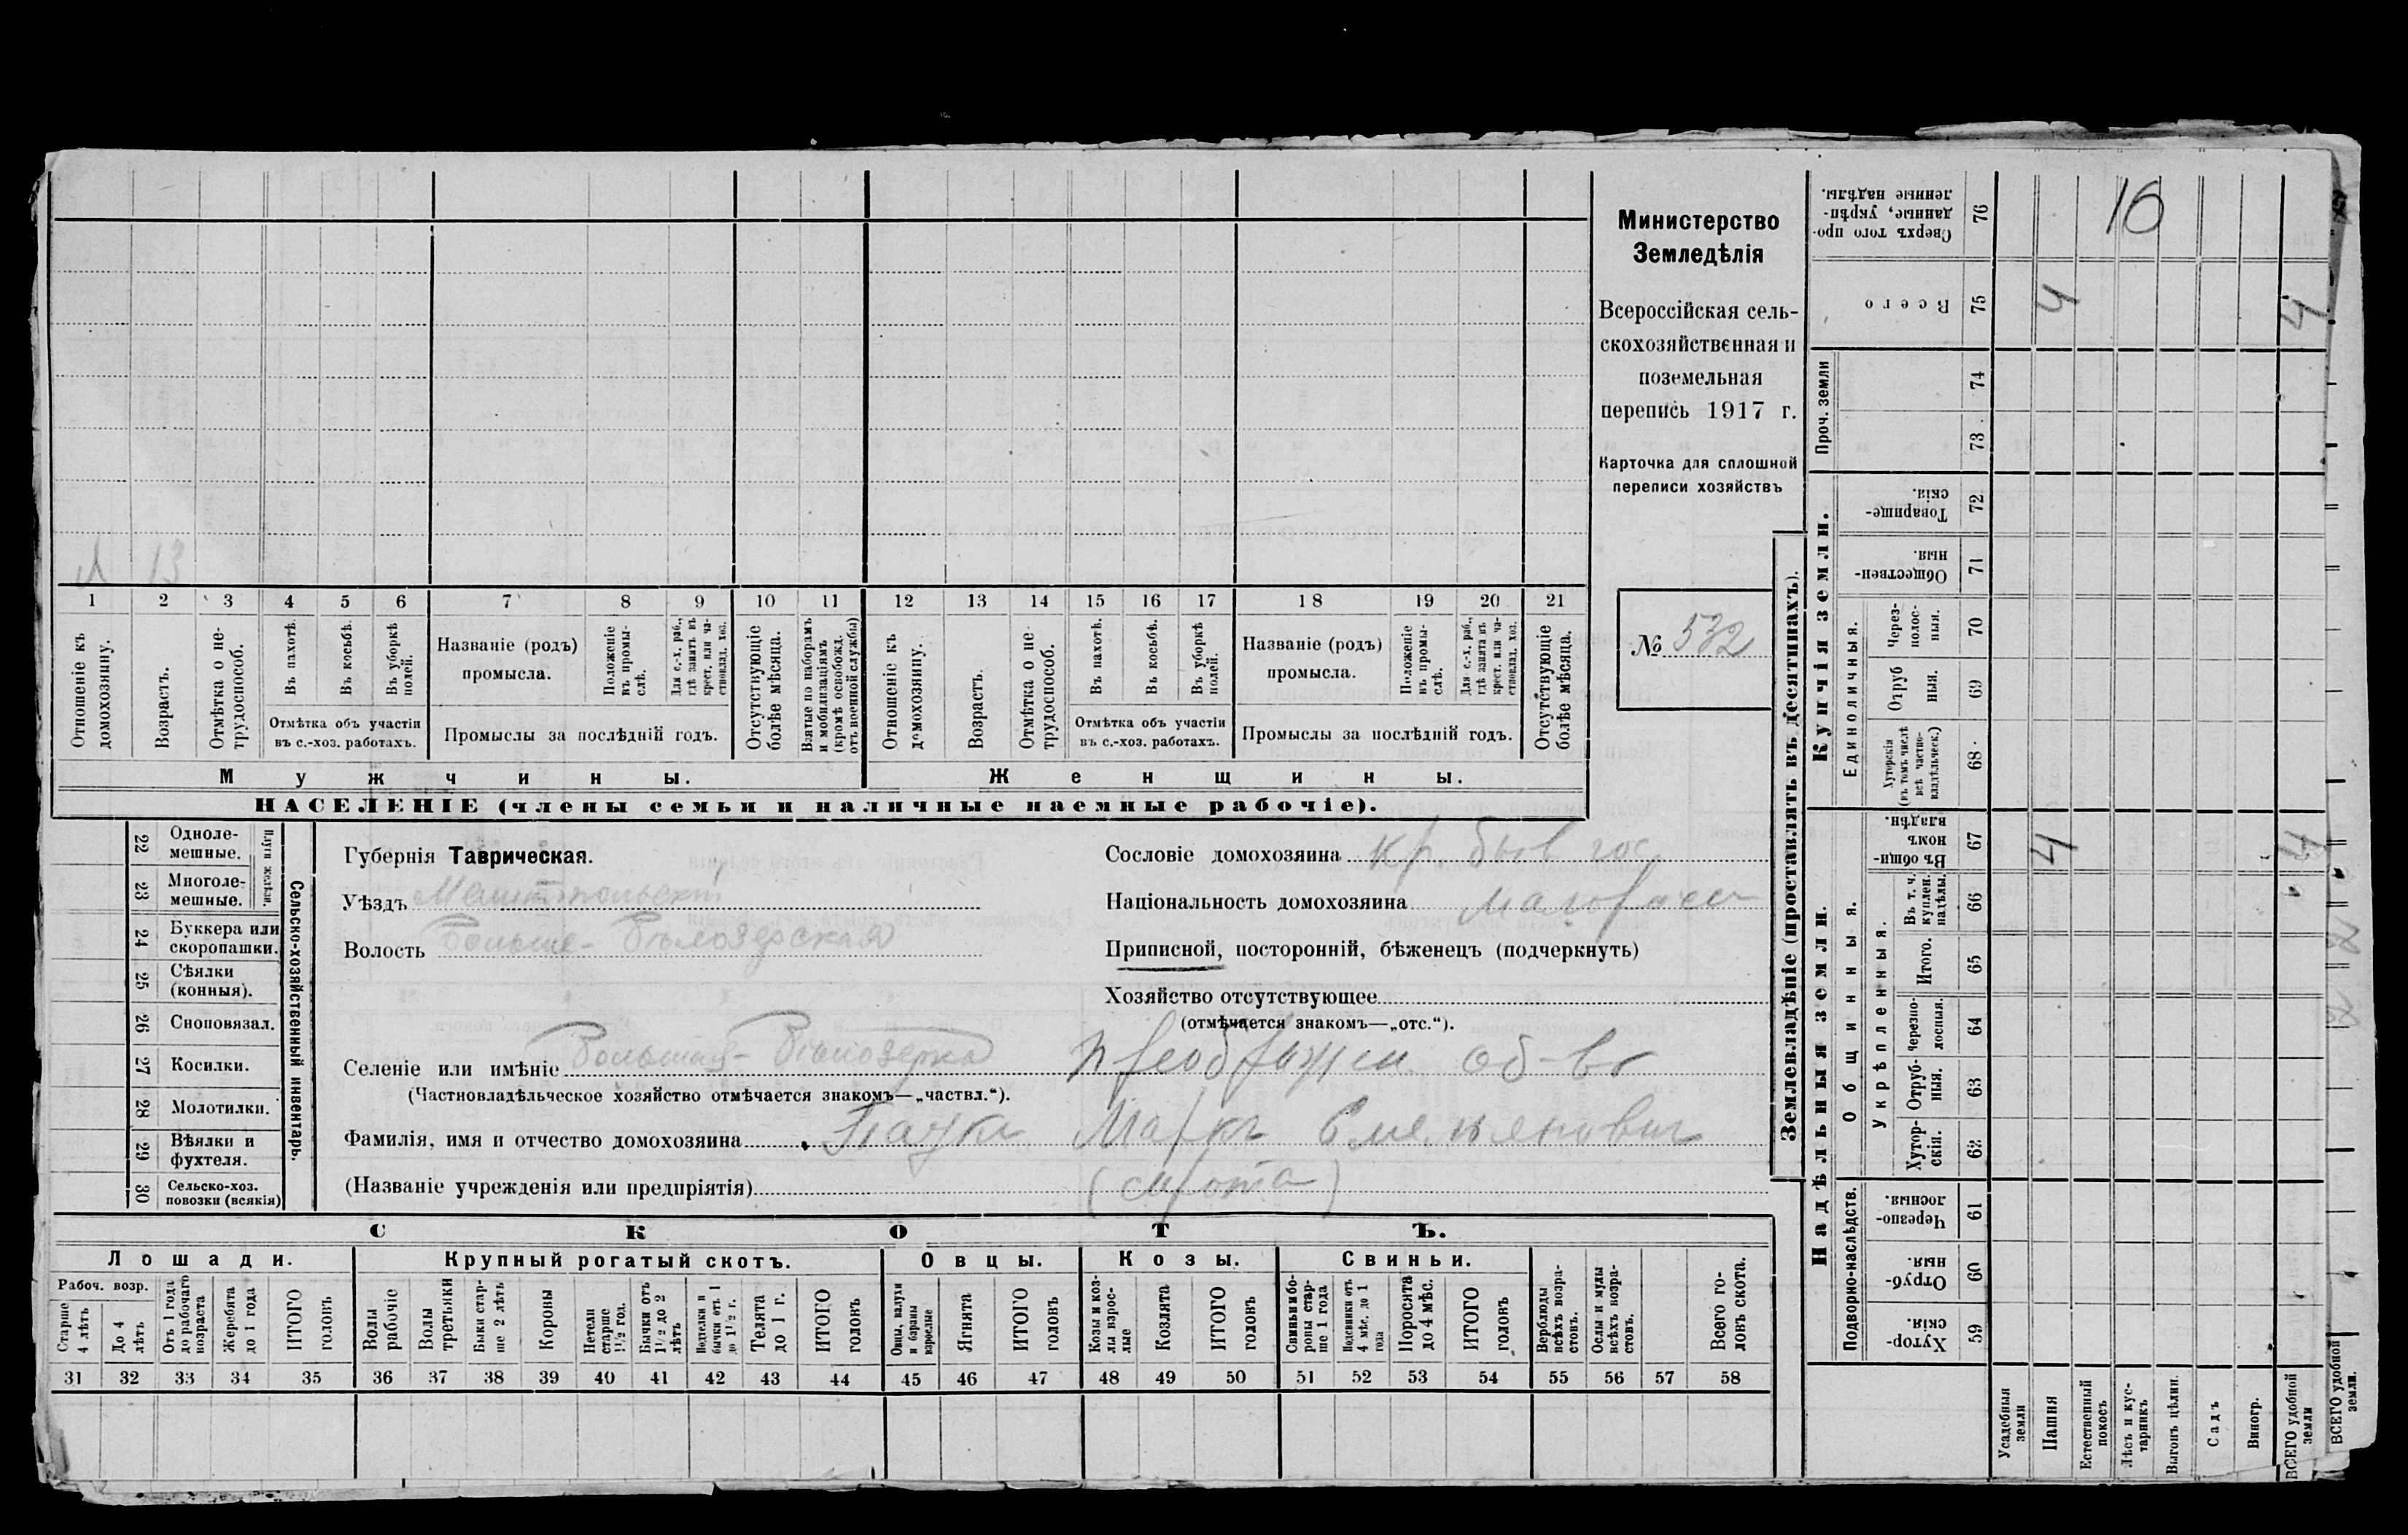 Министерство
Земледѣлія
Всероссійская сель-
скохозяйственная и
поземельная
перепись 1917 г.
Карточка для сплошной
переписи хозяйствъ
№ 532
13
1 2 3 4 5 6 7 8 9 10 11 12 13 14 15 16 17 18 19 20 21
Отношеніе къ домохозяину.
Возрастъ.
Отмѣтка о не-трудоспособ.
Въ пахотѣ.
Въ косьбѣ.
Въ уборкѣ полей.
Отмѣтка объ участіи
въ с.-хоз. работахъ.
Названіе (родъ)
промысла.
Положеніе въ промы-слѣ.
Для с.-х. раб., гдѣ занятъ въ крест. или ча-стновлад. хоз.
Промыслы за послѣдній годъ.
Отсутствующіе болѣе мѣсяца.
Взятые по наборамъ и мобилизаціямъ (кромѣ освобожд. отъ военной службы)
Отношеніе къ домохозяину.
Возрастъ.
Отмѣтка о не-трудоспособ.
Въ пахотѣ.
Въ косьбѣ.
Въ уборкѣ полей.
Отмѣтка объ участіи
въ с.-хоз. работахъ.
Названіе (родъ)
промысла.
Положеніе въ промы-слѣ.
Для с.-х. раб., гдѣ занята въ крест. или ча-стновлад. хоз.
Промыслы за послѣдній годъ.
Отсутствующіе болѣе мѣсяца.
Мужчины. Женщины.
НАСЕЛЕНІЕ (члены семьи и наличные наемные рабочіе).
22 Одноле-мешные.
23 Многоле-мешные.
Плуги желѣзн.
24 Буккера или скоропашки.
25 Сѣялки (конныя).
26 Сноповязал.
27 Косилки.
28 Молотилки.
29 Вѣялки и фухтеля.
30 Сельско-хоз. повозки (всякія)
Сельско-хозяйственный инвентарь.
Губернія Таврическая.
Уѣздъ Мелитопольскій
Волость Больше-Бѣлозерская
Сословіе домохозяина кр. быв гос
Національность домохозяина малоросс
Приписной, посторонній, бѣженецъ (подчеркнуть)
Хозяйство отсутствующее
(отмѣчается знакомъ—„отс.“).
Селеніе или имѣніе Большая-Бѣлозерка Преображен. об-во
(Частновладѣльческое хозяйство отмѣчается знакомъ—„частвл.“).
Фамилія, имя и отчество домохозяина Марко Емельянович
(Названіе учрежденія или предпріятія) (сирота)
СКОТЪ.
Лошади. Крупный рогатый скотъ. Овцы. Козы. Свиньи.
Рабоч. возр.
Старше 4 лѣтъ
До 4 лѣтъ
Отъ 1 года до рабочаго возраста
Жеребята до 1 года
ИТОГО головъ
Волы рабочіе
Волы третьяки
Быки стар-ше 2 лѣтъ
Коровы
Нетели старше 1 1/2 год.
Бычки отъ 1 1/2 до 2 лѣтъ
Подтелки и бычки отъ 1 до 1 1/2 г.
Телята до 1 г.
ИТОГО головъ
Овцы, валухи и бараны взрослые
Ягнята
ИТОГО головъ
Козы и коз-лы взрос-лые
Козлята
ИТОГО головъ
Свиньи и бо-ровы стар-ше 1 года
Подсвинки отъ 4 мѣс. до 1 года
Поросята до 4 мѣс.
ИТОГО головъ
Верблюды всѣхъ возра-стовъ.
Ослы и мулы всѣхъ возра-стовъ.
Всего го-ловъ скота.
31 32 33 34 35 36 37 38 39 40 41 42 43 44 45 46 47 48 49 50 51 52 53 54 55 56 57 58
Землевладѣніе (проставлять въ десятинахъ).
Сверхъ того про-данные, укрѣп-ленные надѣлы. 76 16
Всего 75 4 4
Проч. земли 74
73
Купчія земли.
Товарище-скія. 72
Обществен-ныя. 71
Единоличныя.
Через-полос-ныя. 70
Отруб ныя. 69
Хуторскія (въ томъ числѣ всѣ частно-владѣльческ.) 68
Надѣльныя земли.
Общинныя.
Въ общи-номъ владѣн. 67 4 4
Укрѣпленныя.
Въ т. ч. куплен. надѣлы. 66
Итого. 65
Черезпо-лосныя. 64
Отруб-ныя. 63
Хутор-скія. 62
Подворно-наслѣдств.
Черезпо-лосныя. 61
Отруб-ныя. 60
Хутор-скія. 59
Усадебныя земли
Пашня
Естественный покосъ
Лѣсъ и кус-тарникъ
Выгонъ цѣлин.
Садъ
Виногр.
ВСЕГО удобной земли
ВСЕГО удобной земли.